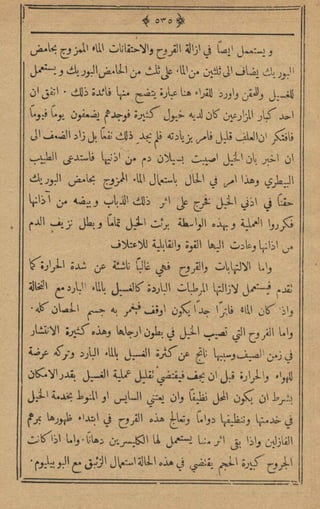 ﴿ ٥٣٥ ﴾
و يستعمل ايضاً في ازالة القروح والاحتقانات الماء الممزوج بحامض
البوريك يضاف الى ثلثين من الماء على ثلث من الحامض البوريك ويستعمل
للغسيل وللحقن واورد للقراء هنا عبارة يتضح منها فائدة ذلك . اتفق ان
احد كبار المزارعين كان لديه خيول كثيرة فوجدهم يضعفون يوماً فيوماً
فافتكر ان العلف قليل فامر بزيادته فلم يجد ذلك نفعاً بل زاد الضعف الى
ان اخبر بان الخيل اصيبت بسيلان دم من اذنيها فاستدعى الطبيب
البيطري وهذا امر في الحال باستعمال الماء الممزوج بحامض البوريك
حقناً في اذني الخيل فخرج على اثر ذلك الذباب وبيضه من آذانها
فكرروا العملية و بهذه الواسطة برئت الخيل تماماً و بطل نزيف الدم
من اذانها وعادت اليها القوة والقابلية للاعتلاف
واما الالتهابات والقروح فهي غالباً ناشئة عن شدة الحرارة كما
تقدم فيستعمل لازالتها المرطبات الباردة كالغسيل بالماء البارد مع النخالة
واذ كان الماء فاتراً جداً يكون اوفق فيغمر به جسم الحصان كله .
واما القروح التي تصيب الخيل في بطون ارجلها وهذه كثيرة الانتشار
في زمن الصيف وسببها ناتج عن كثرة الغسيل بالماء البارد وتركه عرضة
للهواء والحرارة قبل ان يجف فيقتضي تقليل عملية الغسيل بقدر الامكان
بشرط ان يكون المحل نظيفاً وان يعتني السايس او المنوط بخدمة الخيل
في خدمتها وتنظيفها دواماً وتعالج هذه القروح في ابتداء ظهورها بمرهم
الفازلين واذا بقى اثر منها يستعمل لها الكليسرين دهاناً . واما اذا كانت
الجروح كبيرة الحجم يقتضي في هذه الحالة استعمال الزئبق مع اليو بيليوم .